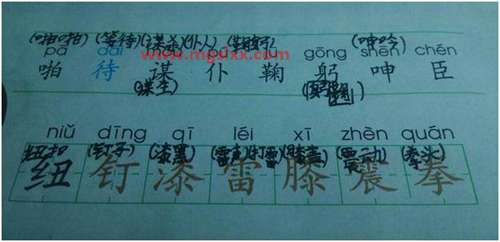 (啪啪)(等待)(谋杀)(仆人)(呻吟)
www.mgslxx.com
pā dāi gōng shēn chén
啪待谋仆鞠躬呻臣
(谋生)
niǔ dīng qī léi xī zhèn quán
(纽扣)(钉子)(漆黑)(雷声)(打雷)(膝盖)(震动)(拳头)
纽钉漆雷膝震拳